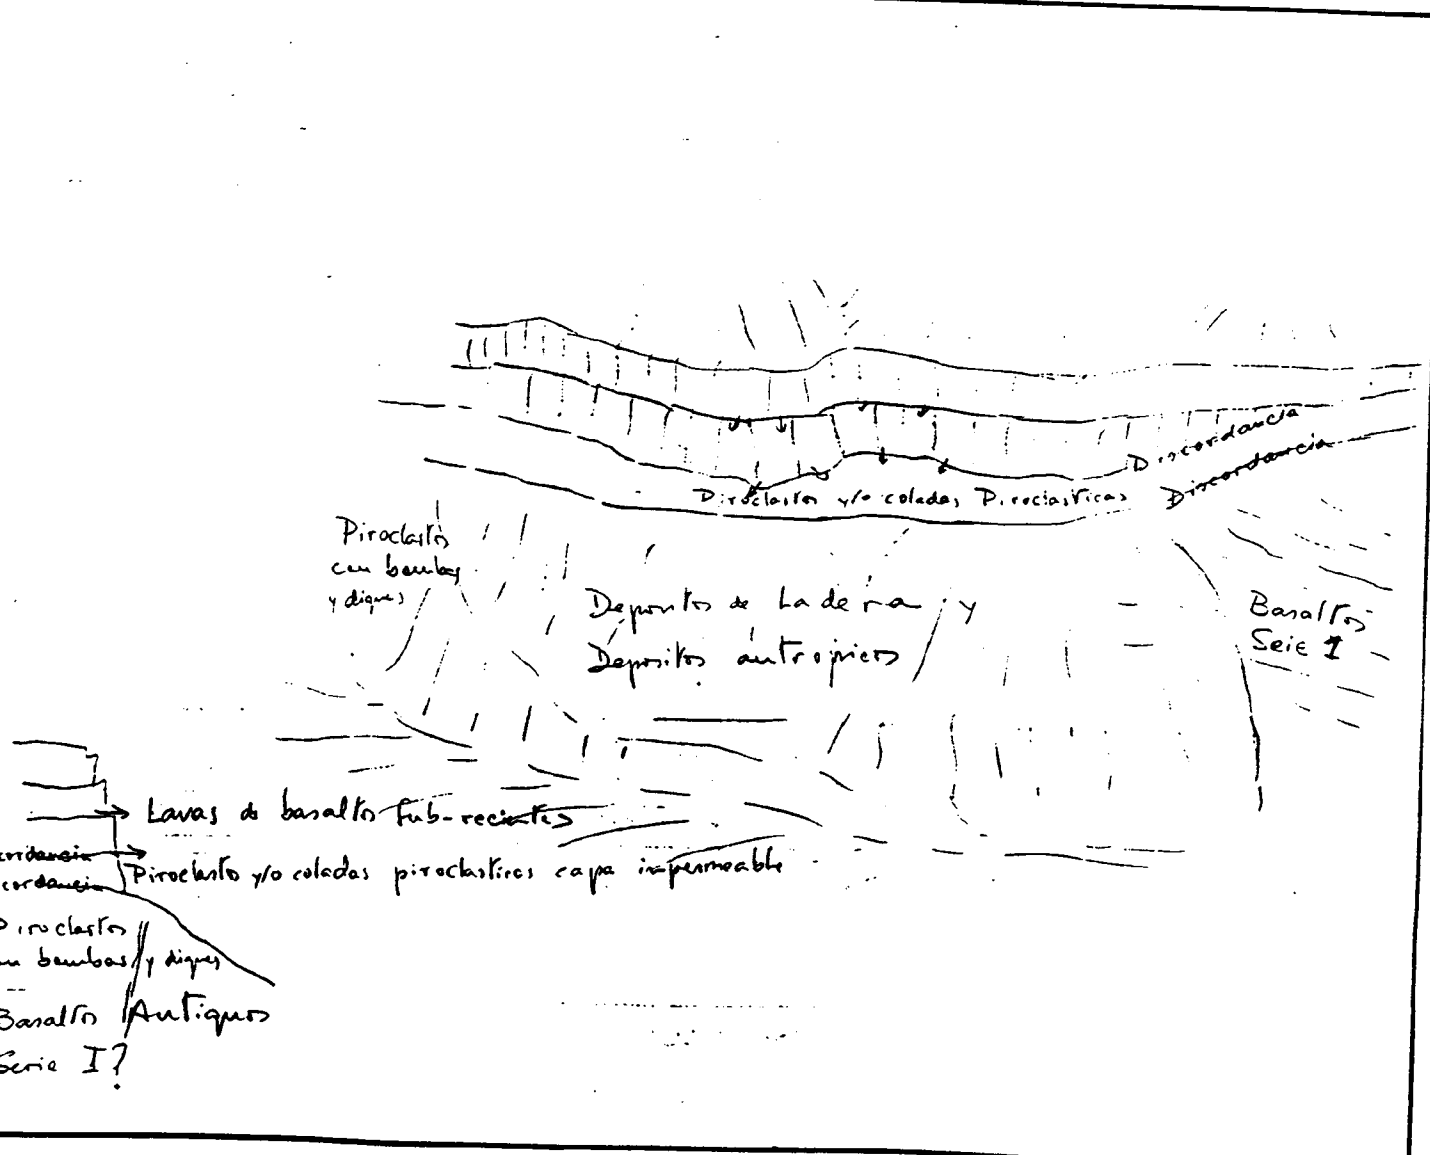 Discordancia
Discordancia
Piroclastos y/o coladas Piroclasticas
Piroclastos
con bombas
y diques
Depositos de Ladera y
Depositos antropicos
Basaltos
Serie I
Lavas de basaltos Sub-recientes
cordancia
cordancia
Piroclasto y/o coladas piroclasticas capa impermeable
Piroclastos
bombas y diques
Basaltos Antiguos
Serie I?